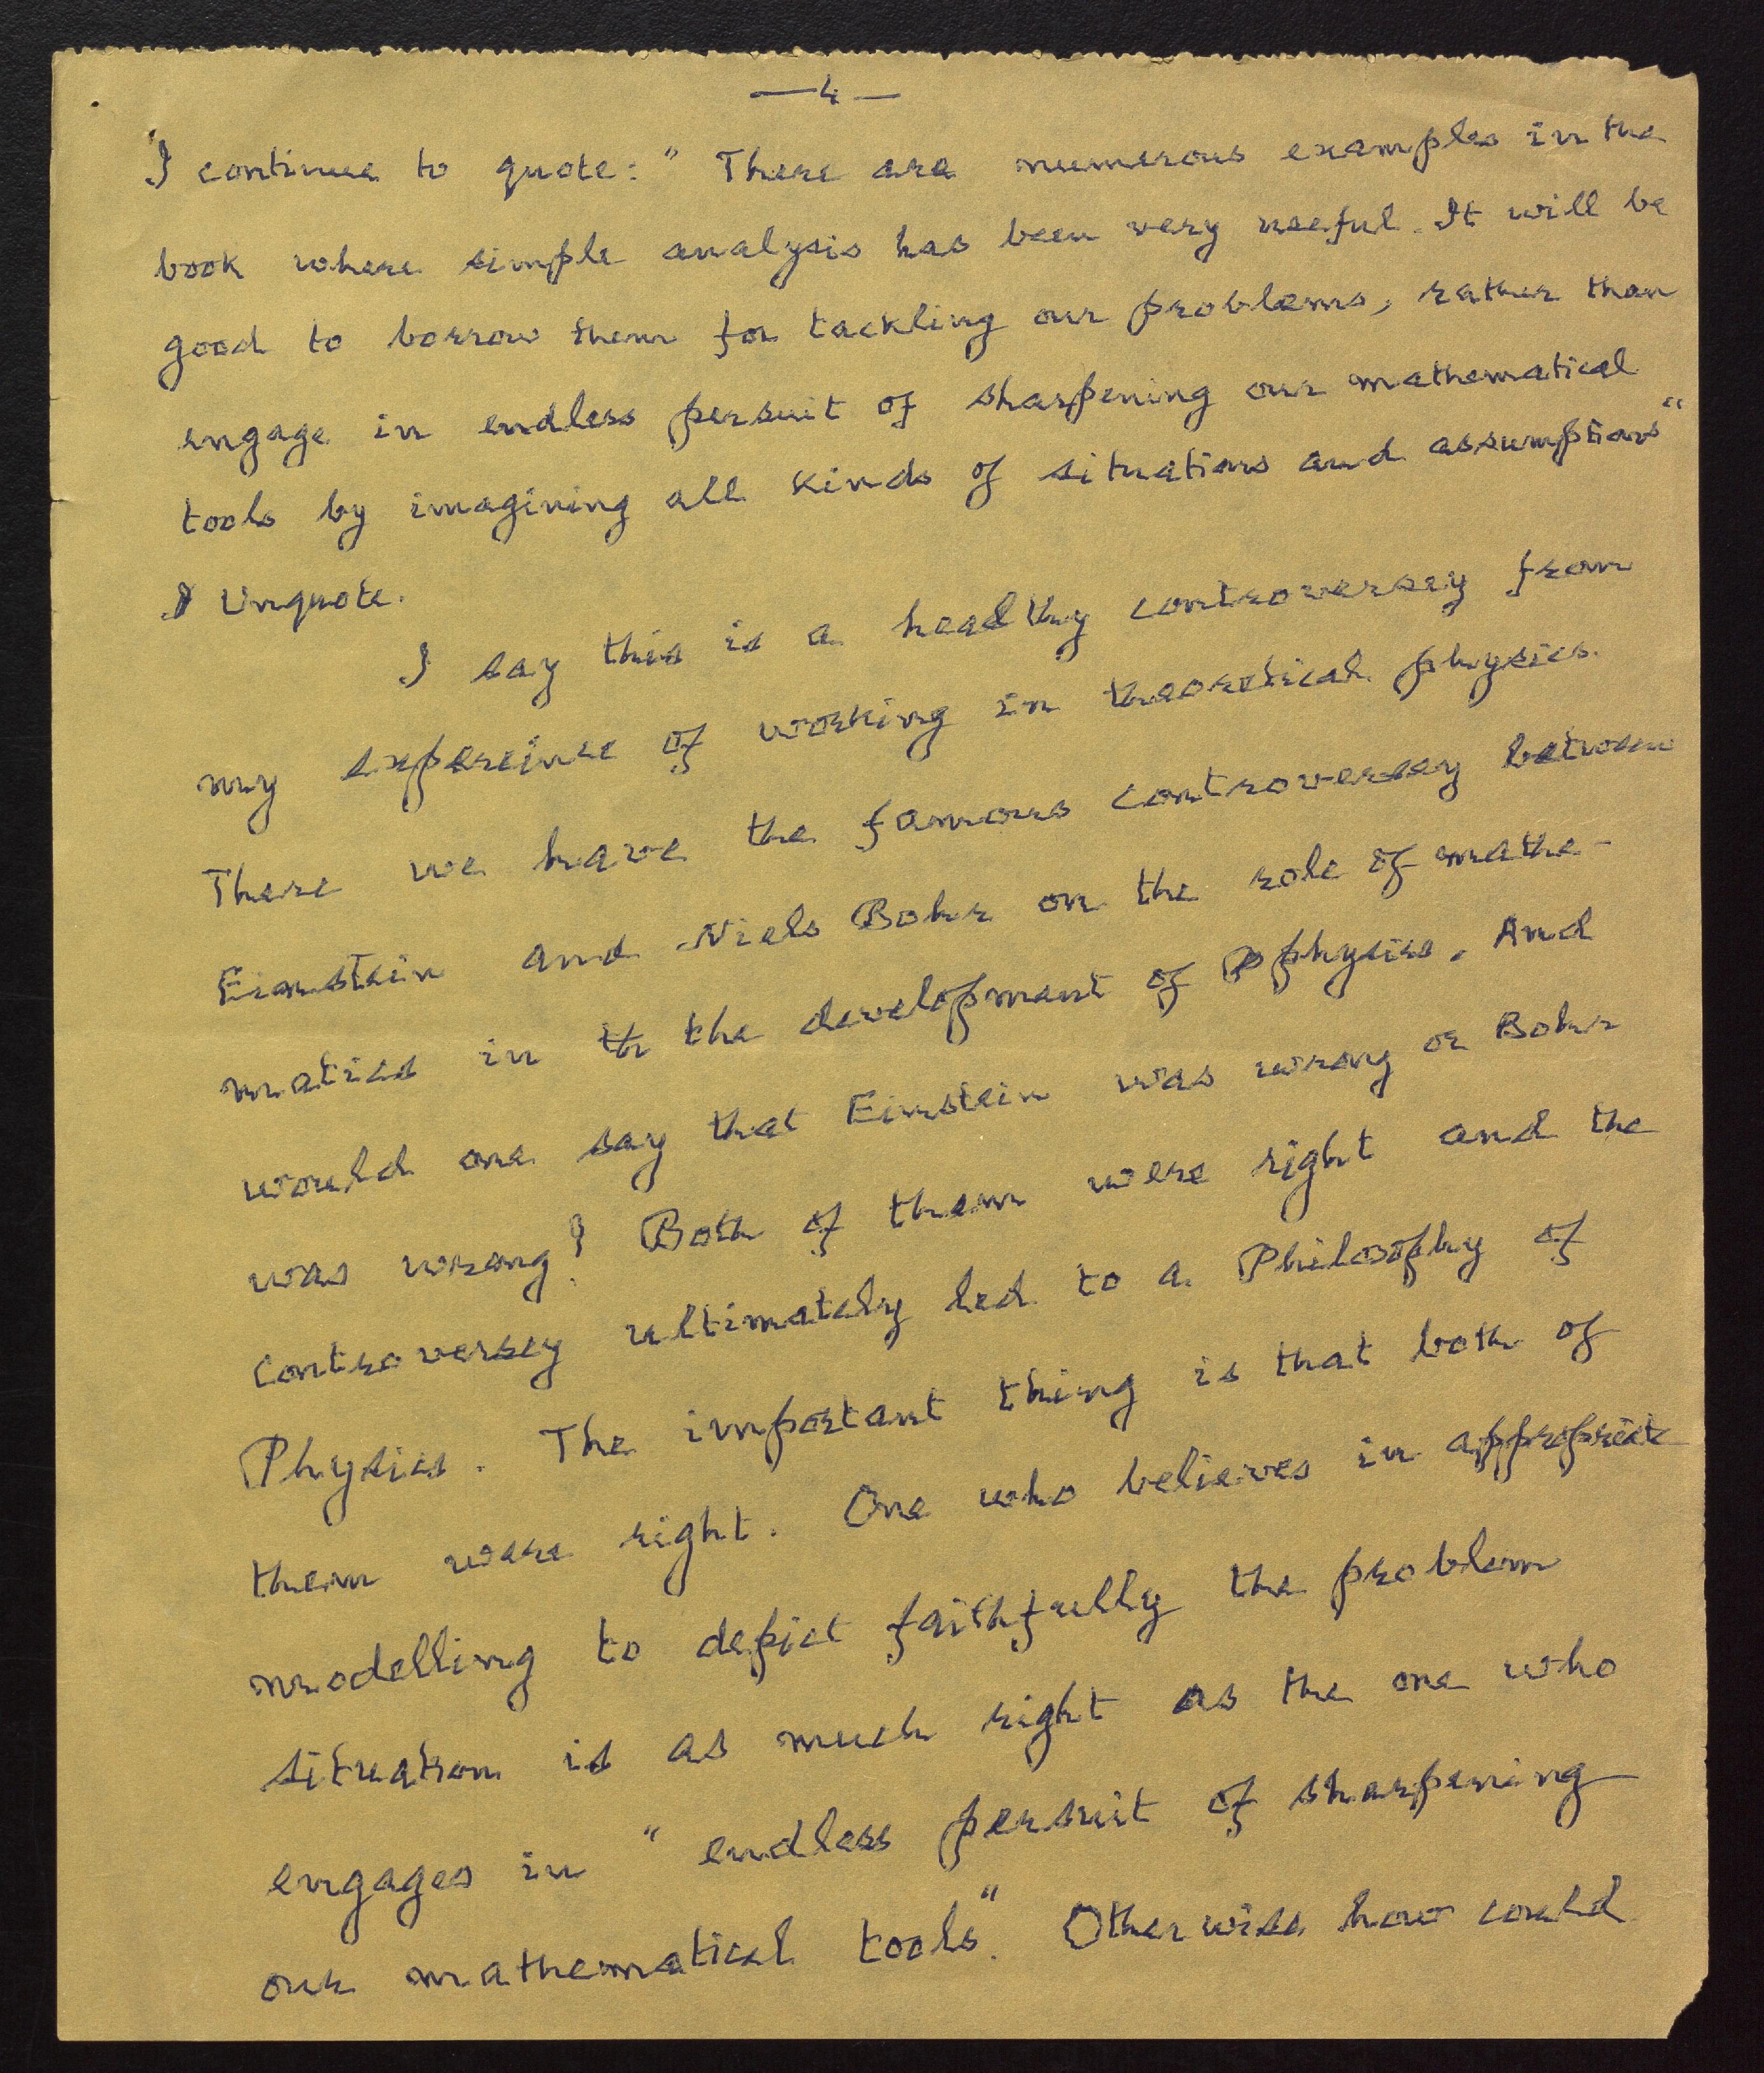 — 4 —
I continue to quote: " There are numerous examples in the
book where simple analysis has been very useful. It will be
good to borrow them for tackling our problems, rather than
engage in endless persuit of sharpening our mathematical
tools by imagining all kinds of situations and assumptions"
I Unquote.
I say this is a healthy controversey from
my expereince of working in theoretical physics.
There we have the famous controversey between
Einstein and Niels Bohr on the role of mathe-
matics in th the development of P physics. And
would one say that Einstein was wrong or Bohr
was wrong? Both of them were right and the
controversey ultimately led to a Philosophy of
Physics. The important thing is that both of
them were right. One who believes in appropriate
modelling to depict faithfully the problem
situation is as much right as the one who
engages in " endless persuit of sharpening
our mathematical tools". Otherwise how could